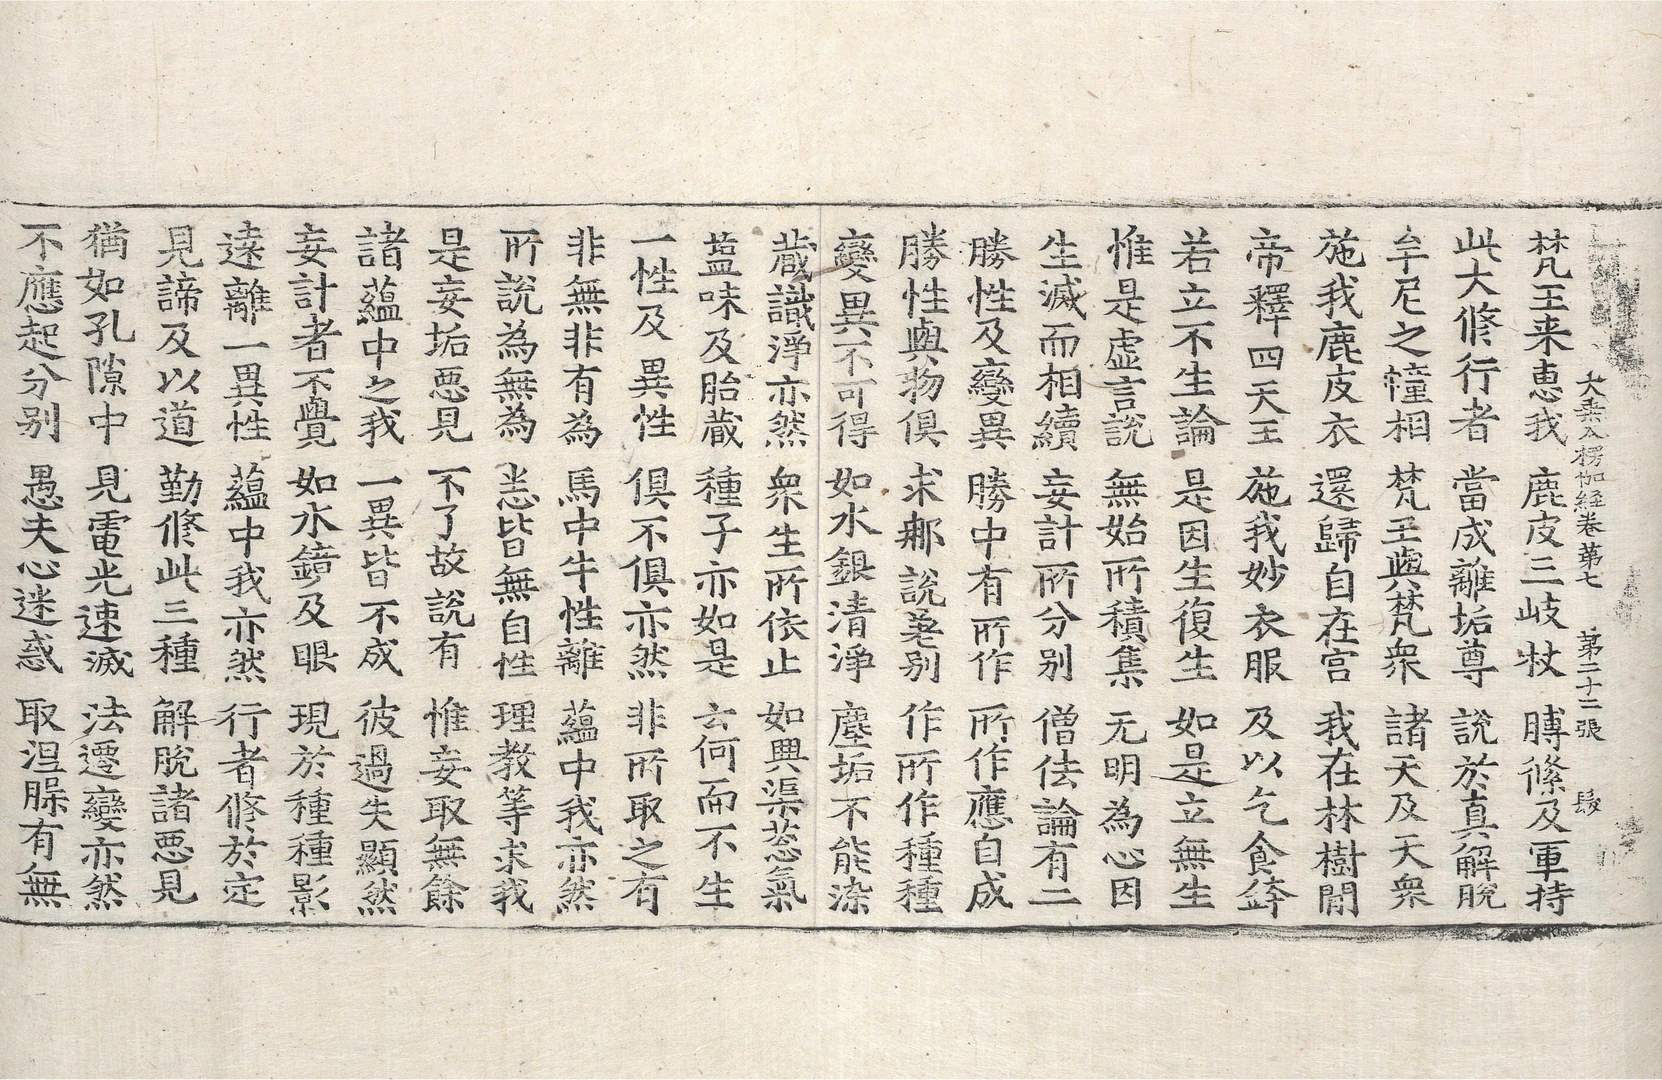 大乘入楞伽經卷第七 第二十二張 髮
梵王来惠我 鹿皮三岐杖 膊絛及軍持
此大修行者 當成離垢尊 說於真解脫
牟尼之幢相 梵王與梵衆 諸天及天衆
施我鹿皮衣 還歸自在宮 我在林樹間
帝釋四天王 施我妙衣服 及以乞食鉢
若立不生論 是因生復生 如是立無生
惟是虛言說 無始所積集 无明為心因
生滅而相續 妄計所分別 僧佉論有二
勝性及變異 勝中有所作 所作應自成
勝性與物俱 求那說差別 作所作種種
變異不可得 如水銀清淨 塵垢不能染
藏識淨亦然 衆生所依止 如興渠葱氣
塩味及胎藏 種子亦如是 云何而不生
一性及異性 俱不俱亦然 非所取之有
非無非有為 馬中牛性離 蘊中我亦然
所說為無為 悉皆無自性 理教等求我
是妄垢惡見 不了故說有 惟妄取無餘
諸蘊中之我 一異皆不成 彼過失顯然
妄計者不覺 如水鏡及眼 現於種種影
遠離一異性 蘊中我亦然 行者修於定
見諦及以道 勤修此三種 解脫諸惡見
猶如孔隙中 見電光速滅 法遷變亦然
不應起分別 愚夫心迷惑 取涅槃有無